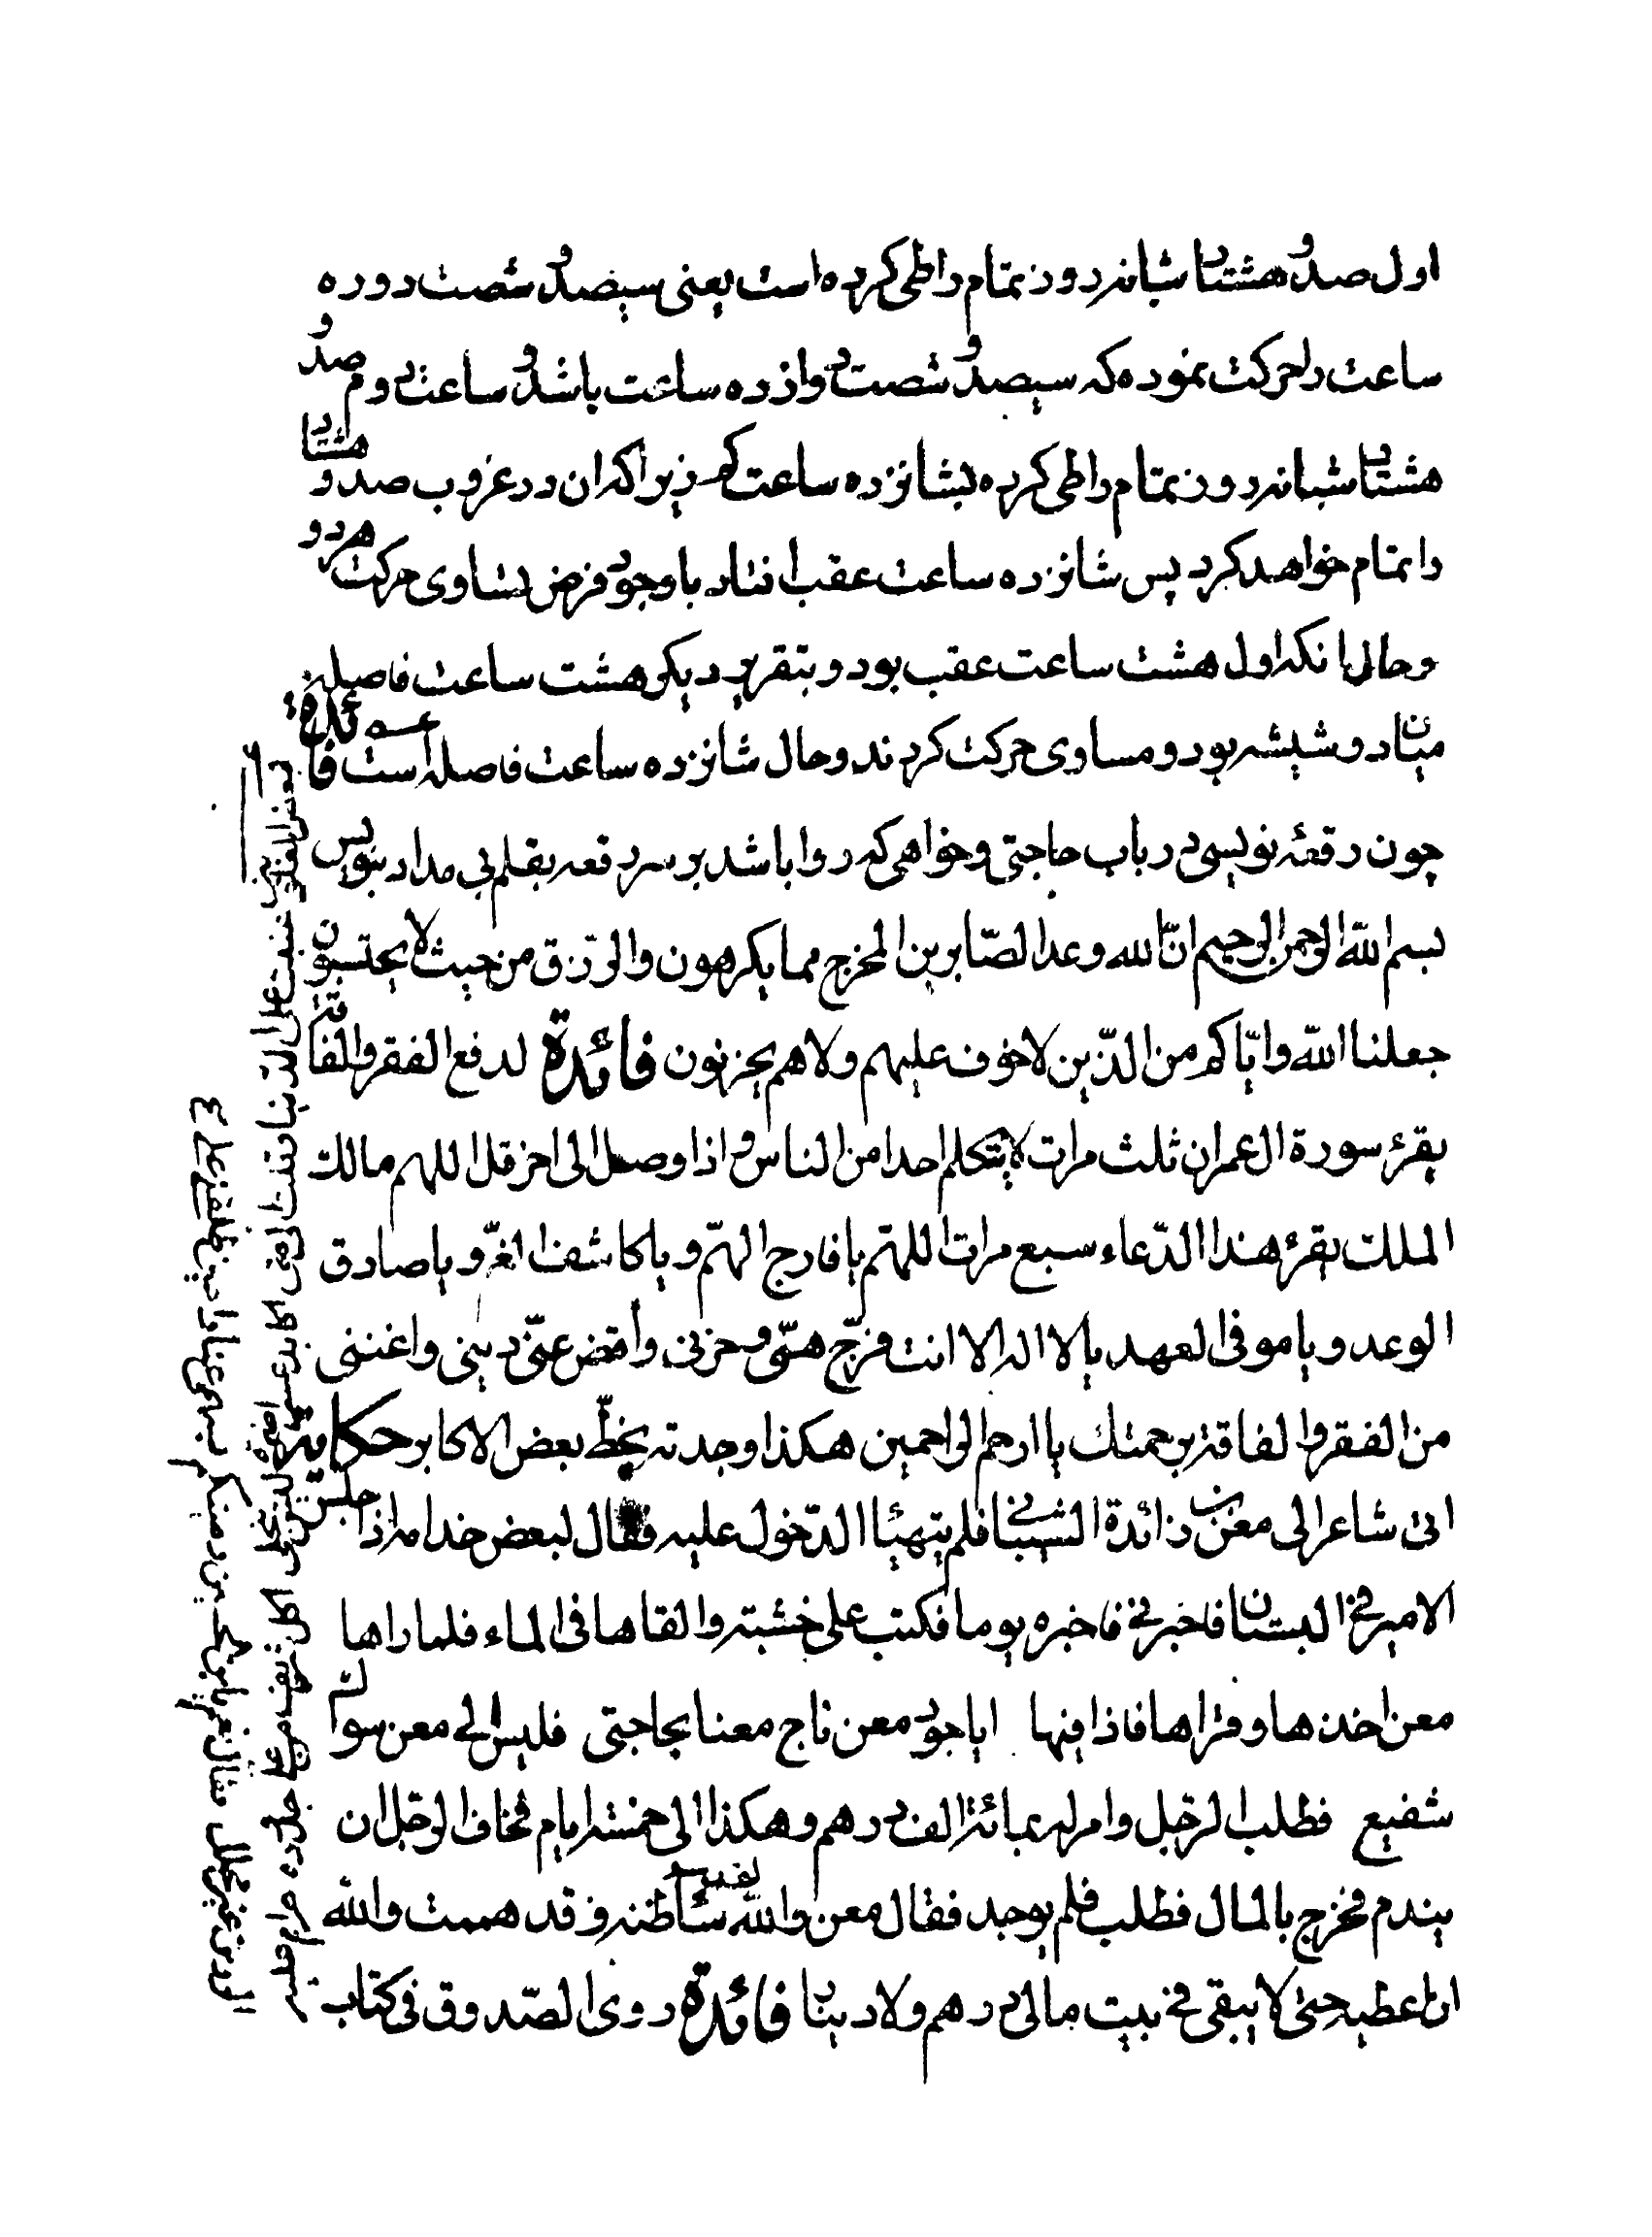 اول صد و هشتاد شبانه روز تمام را طی کرده است یعنی سیصد و شصت دوره
ساعت را حرکت نموده که سیصد و شصت دوازده ساعت باشد و ساعت دوم صد و
هشتاد شبانه روز تمام را طی کرده بشانزده ساعت کم زیرا که ان در غروب صد و هشتاد
را تمام خواهد کرد پس شانزده ساعت عقب افتاد با وجود فرض تساوی حرکت هر دو
و حال انکه اول هشت ساعت عقب بود و بتقریر دیگر هشت ساعت فاصله
میان دو شیشه بود و مساوی حرکت کردند و حال شانزده ساعت فاصله است فائدة
چون رقعهٔ نویسی در باب حاجتی و خواهی که روا باشد بر سر رقعه بقلم بی مداد بنویس
بسم الله الرحمن الرحیم انّ الله وعد الصّابرین المخرج مما یکرهون والرّزق من حیث لا یحتسبون
جعلنا الله وایّاکم من الّذین لا خوف علیهم ولا هم یحزنون فائدة لدفع الفقر والفاقة
یقرء سورة ال عمران ثلث مرات لا یتکلم احدا من الناس و اذا وصل الی اخر قل اللهم مالك
الملك یقرء هذا الدّعاء سبع مرات اللهّم یا فارج الهمّ و یا کاشف الغمّ و یا صادق
الوعد و یا موفی العهد یا لا اله الا انت فرّج همّی و حزنی واقض عنّی دینی واغننی
من الفقر والفاقة برحمتك یا ارحم الراحمین هکذا وجدته بخطّ بعض الاکابر حکایة
اتی شاعر الی معن بن زائدة الشیبانی فلم یتهیّا الدّخول علیه فقال لبعض خدامه اذا جلس
الامیر فی البستان فاخبرنی فاخبره یوما فکتب علی خشبة والقاها فی الماء فلما راها
معن اخذها وقراها فاذا فیها ایا جود معن ناج معنا بحاجتی فلیس الی معن سواك
شفیع فطلب الرجل وامر له بمائة الف درهم وهکذا الی خمسة ایام فخاف الرجل ان
یندم فخرج بالمال فطلب فلم یوجد فقال معن والله لقد ساء ظنه وقد هممت والله
ان اعطیه حتی لا یبقی فی بیت مالی درهم ولا دینار فائدة روی الصّدوق فی کتاب